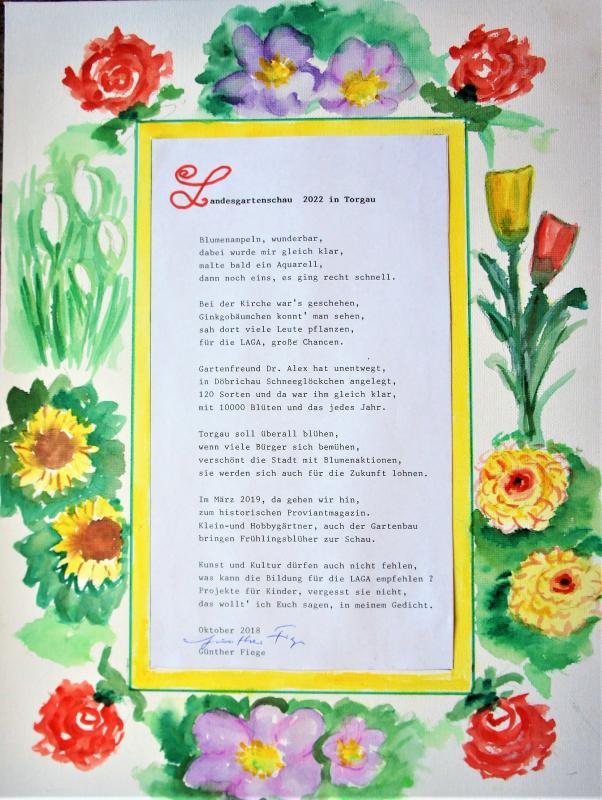 Landesgartenschau 2022 in Torgau
Blumenampeln, wunderbar,
dabei wurde mir gleich klar,
malte bald ein Aquarell,
dann noch eins, es ging recht schnell.
Bei der Kirche war's geschehen,
Ginkgobäumchen konnt' man sehen,
sah dort viele Leute pflanzen,
für die LAGA, große Chancen.
Gartenfreund Dr. Alex hat unentwegt,
in Döbrichau Schneeglöckchen angelegt,
120 Sorten und da war ihm gleich klar,
mit 10000 Blüten und das jedes Jahr.
Torgau soll überall blühen,
wenn viele Bürger sich bemühen,
verschönt die Stadt mit Blumenaktionen,
sie werden sich auch für die Zukunft lohnen.
Im März 2019, da gehen wir hin,
zum historischen Proviantmagazin.
Klein-und Hobbygärtner, auch der Gartenbau
bringen Frühlingsblüher zur Schau.
Kunst und Kultur dürfen auch nicht fehlen,
was kann die Bildung für die LAGA empfehlen ?
Projekte für Kinder, vergesst sie nicht,
das wollt' ich Euch sagen, in meinem Gedicht.
Oktober 2018
Günther Fiege
Günther Fiege